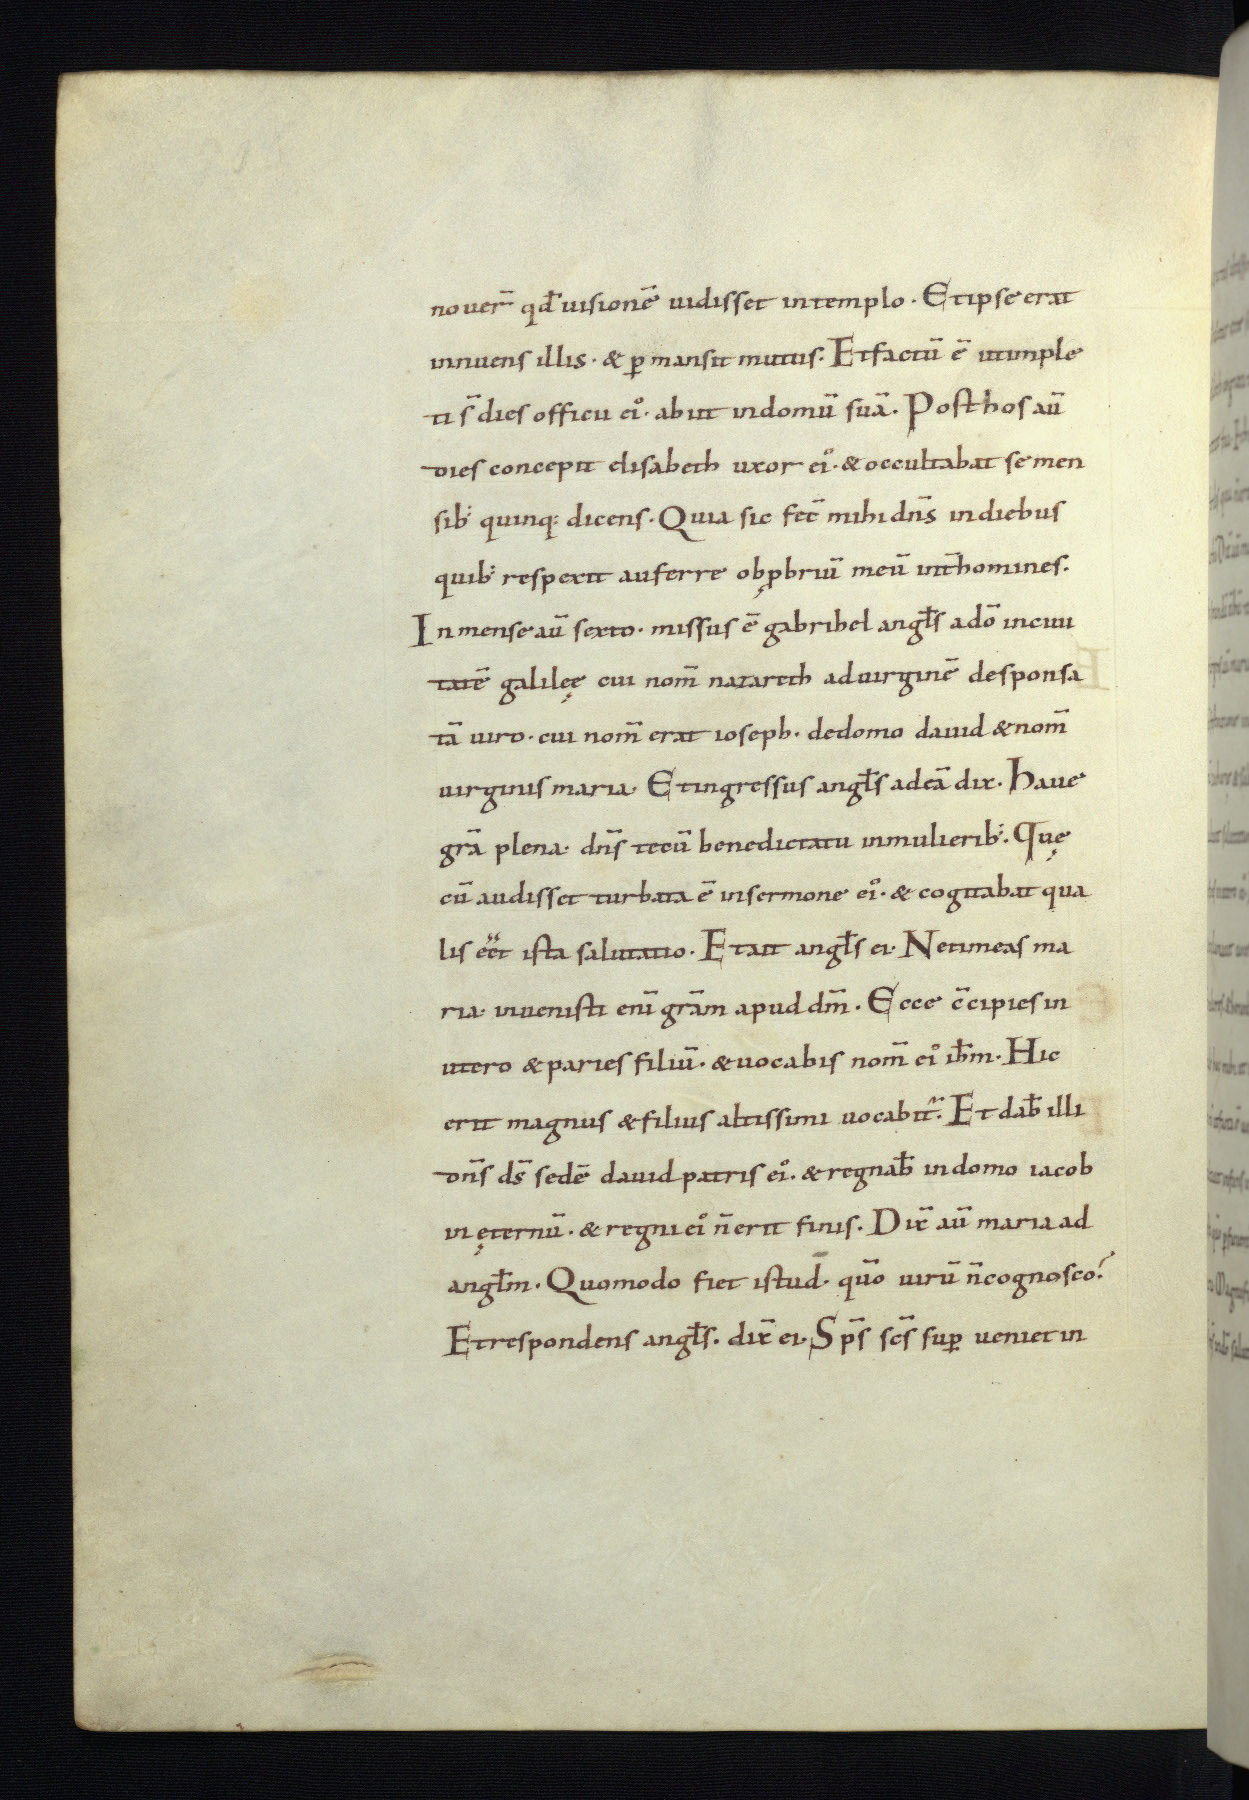 nouer̄ qđ uisionē uidisset intemplo · Etipse erat
innuens illis · & ꝑmansit mutus. Etfactū ē utimple
ti s̄ dies officii ei᾿ · abiit indomū suā . Posthos aū
dies concepit elisabeth uxor ei᾿ · & occultabat se men
sib; quinq; dicens · Quia sic fec̄ mihi dn̄s indiebus
quib; respexit auferre obp̱briū meū int̄ homines .
In mense aū sexto · missus ē gabrihel angl̄s adō inciui
tatē galileę cui nom̄ nazareth aduirginē desponsa
tā uiro · cui nom̄ erat ioseph · dedomo dauid & nom̄
uirginis maria · Etingressus angl̄s adeā dix̄ . Haue
grā plena · dn̄s tecū benedictatu inmulierib; . Quę
cū audisset turbata ē insermone ei᾿ · & cogitabat qua
lis eēt ista salutatio · Etait angl̄s ei · Netimeas ma
ria · inuenisti enī grām apud dm̄ . Ecce c̄cipies in
utero & paries filiū · & uocabis nom̄ ei᾿ ihm̄ · Hic
erit magnus & filius altissimi uocabit᷑ . Et dab̄ illi
dn̄s ds̄ sedē dauid patris ei᾿ · & regnab̄ indomo iacob
in ęternū · & regni ei᾿ n̄ erit finis . Dix̄ aū maria ad
angl̄m . Quomodo fiet istud · quō uirū n̄ cognosco?
Etrespondens angl̄s · dix̄ ei · Sp̄s sc̄s suꝑ ueniet in